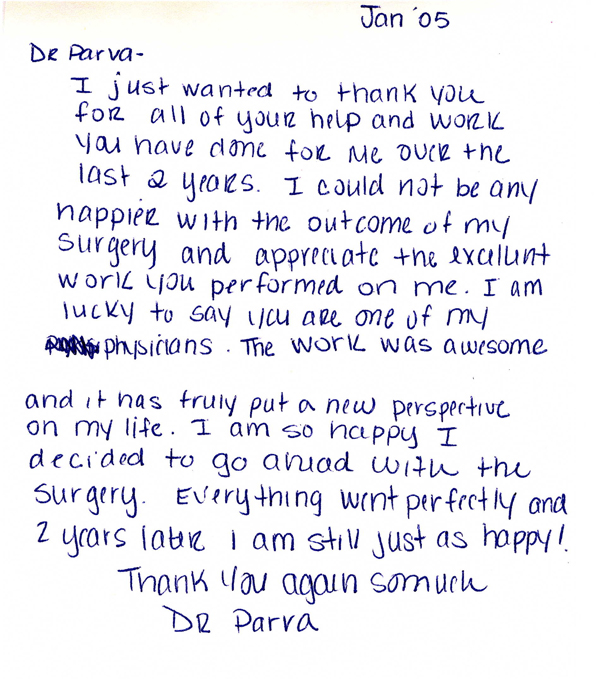 Jan '05
Dr Parva-
I just wanted to thank you
for all of your help and work
you have done for me over the
last 2 years. I could not be any
happier with the outcome of my
surgery and appreciate the excellent
work you performed on me. I am
lucky to say you are one of my
physicians. The work was awesome
and it has truly put a new perspective
on my life. I am so happy I
decided to go ahead with the
surgery. Everything went perfectly and
2 years later I am still just as happy!
Thank you again so much
Dr Parva